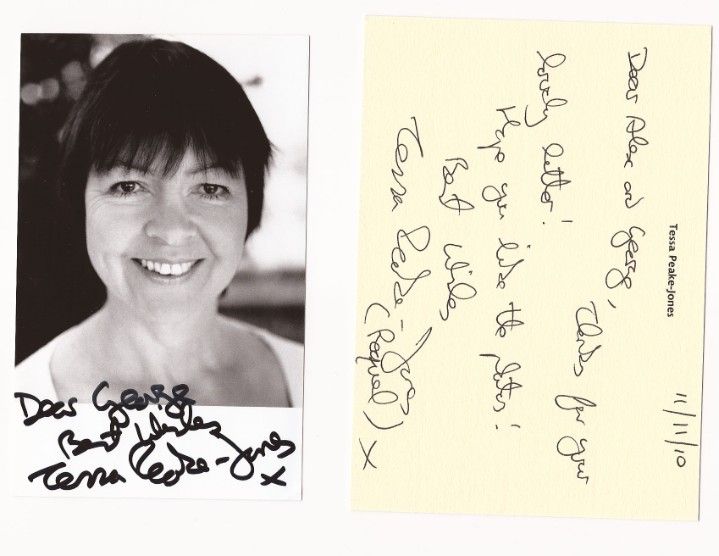 Dear George
Best Wishes
Tessa Peake-Jones
x
Tessa Peake-Jones
11/11/10
Dear Alex and George,
Thanks for your
lovely letter!
Hope you like the photos!
Best Wishes
Tessa Peake-Jones
(Raquel) x